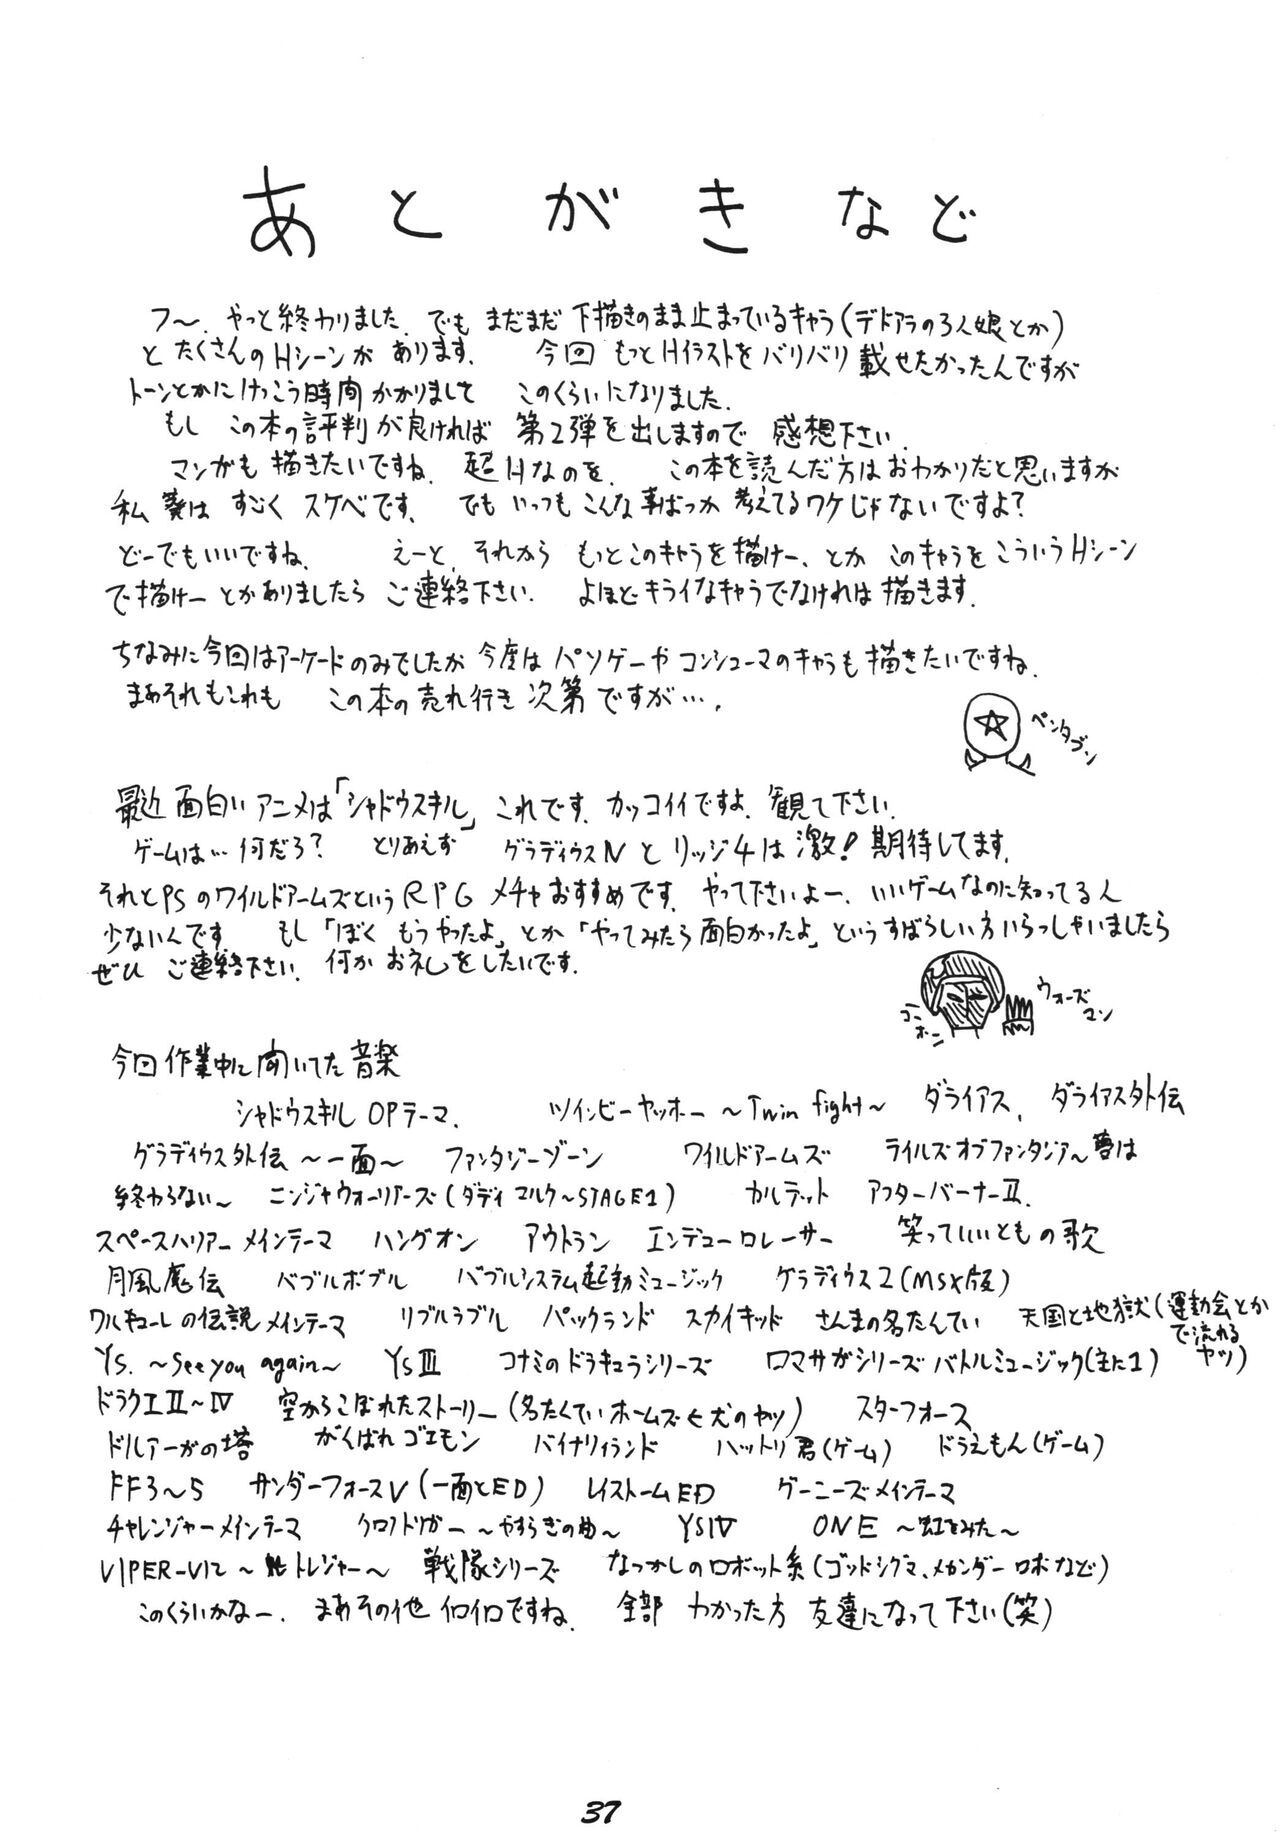 あとがきなど
フ〜、やっと終わりました、でも まだまだ 下描きのまま止まっているキャラ(デドアラの3人娘とか)
と たくさんの Hシーンが あります。 今回 もっとHイラストを バリバリ 載せたかったんですが
トーンとかに けっこう時間 かかりまして このくらいになりました。
もし この本の評判が良ければ 第2弾を出しますので 感想下さい。
マンガも 描きたいですね、超Hなのを、 この本を読んだ方はおわかりだと思いますが
私 葵は すごく スケベです。 でも いっつも こんな事ばっか 考えてるワケじゃないですよ?
どーでもいいですね、 えーと、それから もっとこのキャラを描けー、とか このキャラを こういうHシーン
で描けー とかありましたら ご連絡下さい。 よほど キライなキャラでなければ描きます。
ちなみに今回はアーケードのみでしたが 今度は パソゲーや コンシューマのキャラも 描きたいですね、
まあそれもこれも この本の売れ行き次第ですが…。
ペンタゴン
最近 面白いアニメは「シャドウスキル」 これです。カッコイイですよ、観て下さい。
ゲームは… 何だろ? とりあえず グラディウスⅣ と リッジ4は 激! 期待してます。
それとPSのワイルドアームズという RPG メチャおすすめです。やって下さいよー、いいゲームなのに知ってる人
少ないんです。 もし「ぼく もうやったよ」とか「やってみたら面白かったよ」というすばらしい方いらっしゃいましたら
ぜひ ご連絡下さい、何か お礼をしたいです。
コーホー
ウォーズマン
今回 作業中に聞いてた 音楽
シャドウスキル OPテーマ、 ツインビーヤッホー 〜Twin fight〜 ダライアス、 ダライアス外伝
グラディウス外伝 〜一面〜 ファンタジーゾーン ワイルドアームズ テイルズオブファンタジア〜夢は
終わらない〜 ニンジャウォーリアーズ(ダディマルク〜STAGE1) カルテット アフターバーナーⅡ
スペースハリアー メインテーマ ハングオン アウトラン エンデューロレーサー 笑っていいともの歌
月風魔伝 バブルボブル バブルシステム起動ミュージック グラディウス2(MSX版)
ワルキューレの伝説 メインテーマ リブルラブル パックランド スカイキッド さんまの名たんてい 天国と地獄(運動会とか
で流れる
ヤツ)
YS. 〜See you again〜 YSⅢ コナミのドラキュラシリーズ ロマサガシリーズ バトルミュージック(主に1)
ドラクエⅡ〜Ⅳ 空からこぼれたストーリー(名たんていホームズ 犬のヤツ) スターフォース
ドルアーガの塔 がんばれゴエモン バイナリィランド ハットリ君(ゲーム) ドラえもん(ゲーム)
FF3〜5 サンダーフォースV(一面とED) レイストームED グーニーズメインテーマ
チャレンジャーメインテーマ クロノトリガー 〜やすらぎの 〜 YSⅣ ONE 〜虹をみた〜
VIPER-V12 〜 トレジャー〜 戦隊シリーズ なつかしのロボット系(ゴッドシグマ、メカンダーロボなど)
このくらいかなー、 まあその他 イロイロですね、 全部 わかった方 友達になって下さい(笑)
37